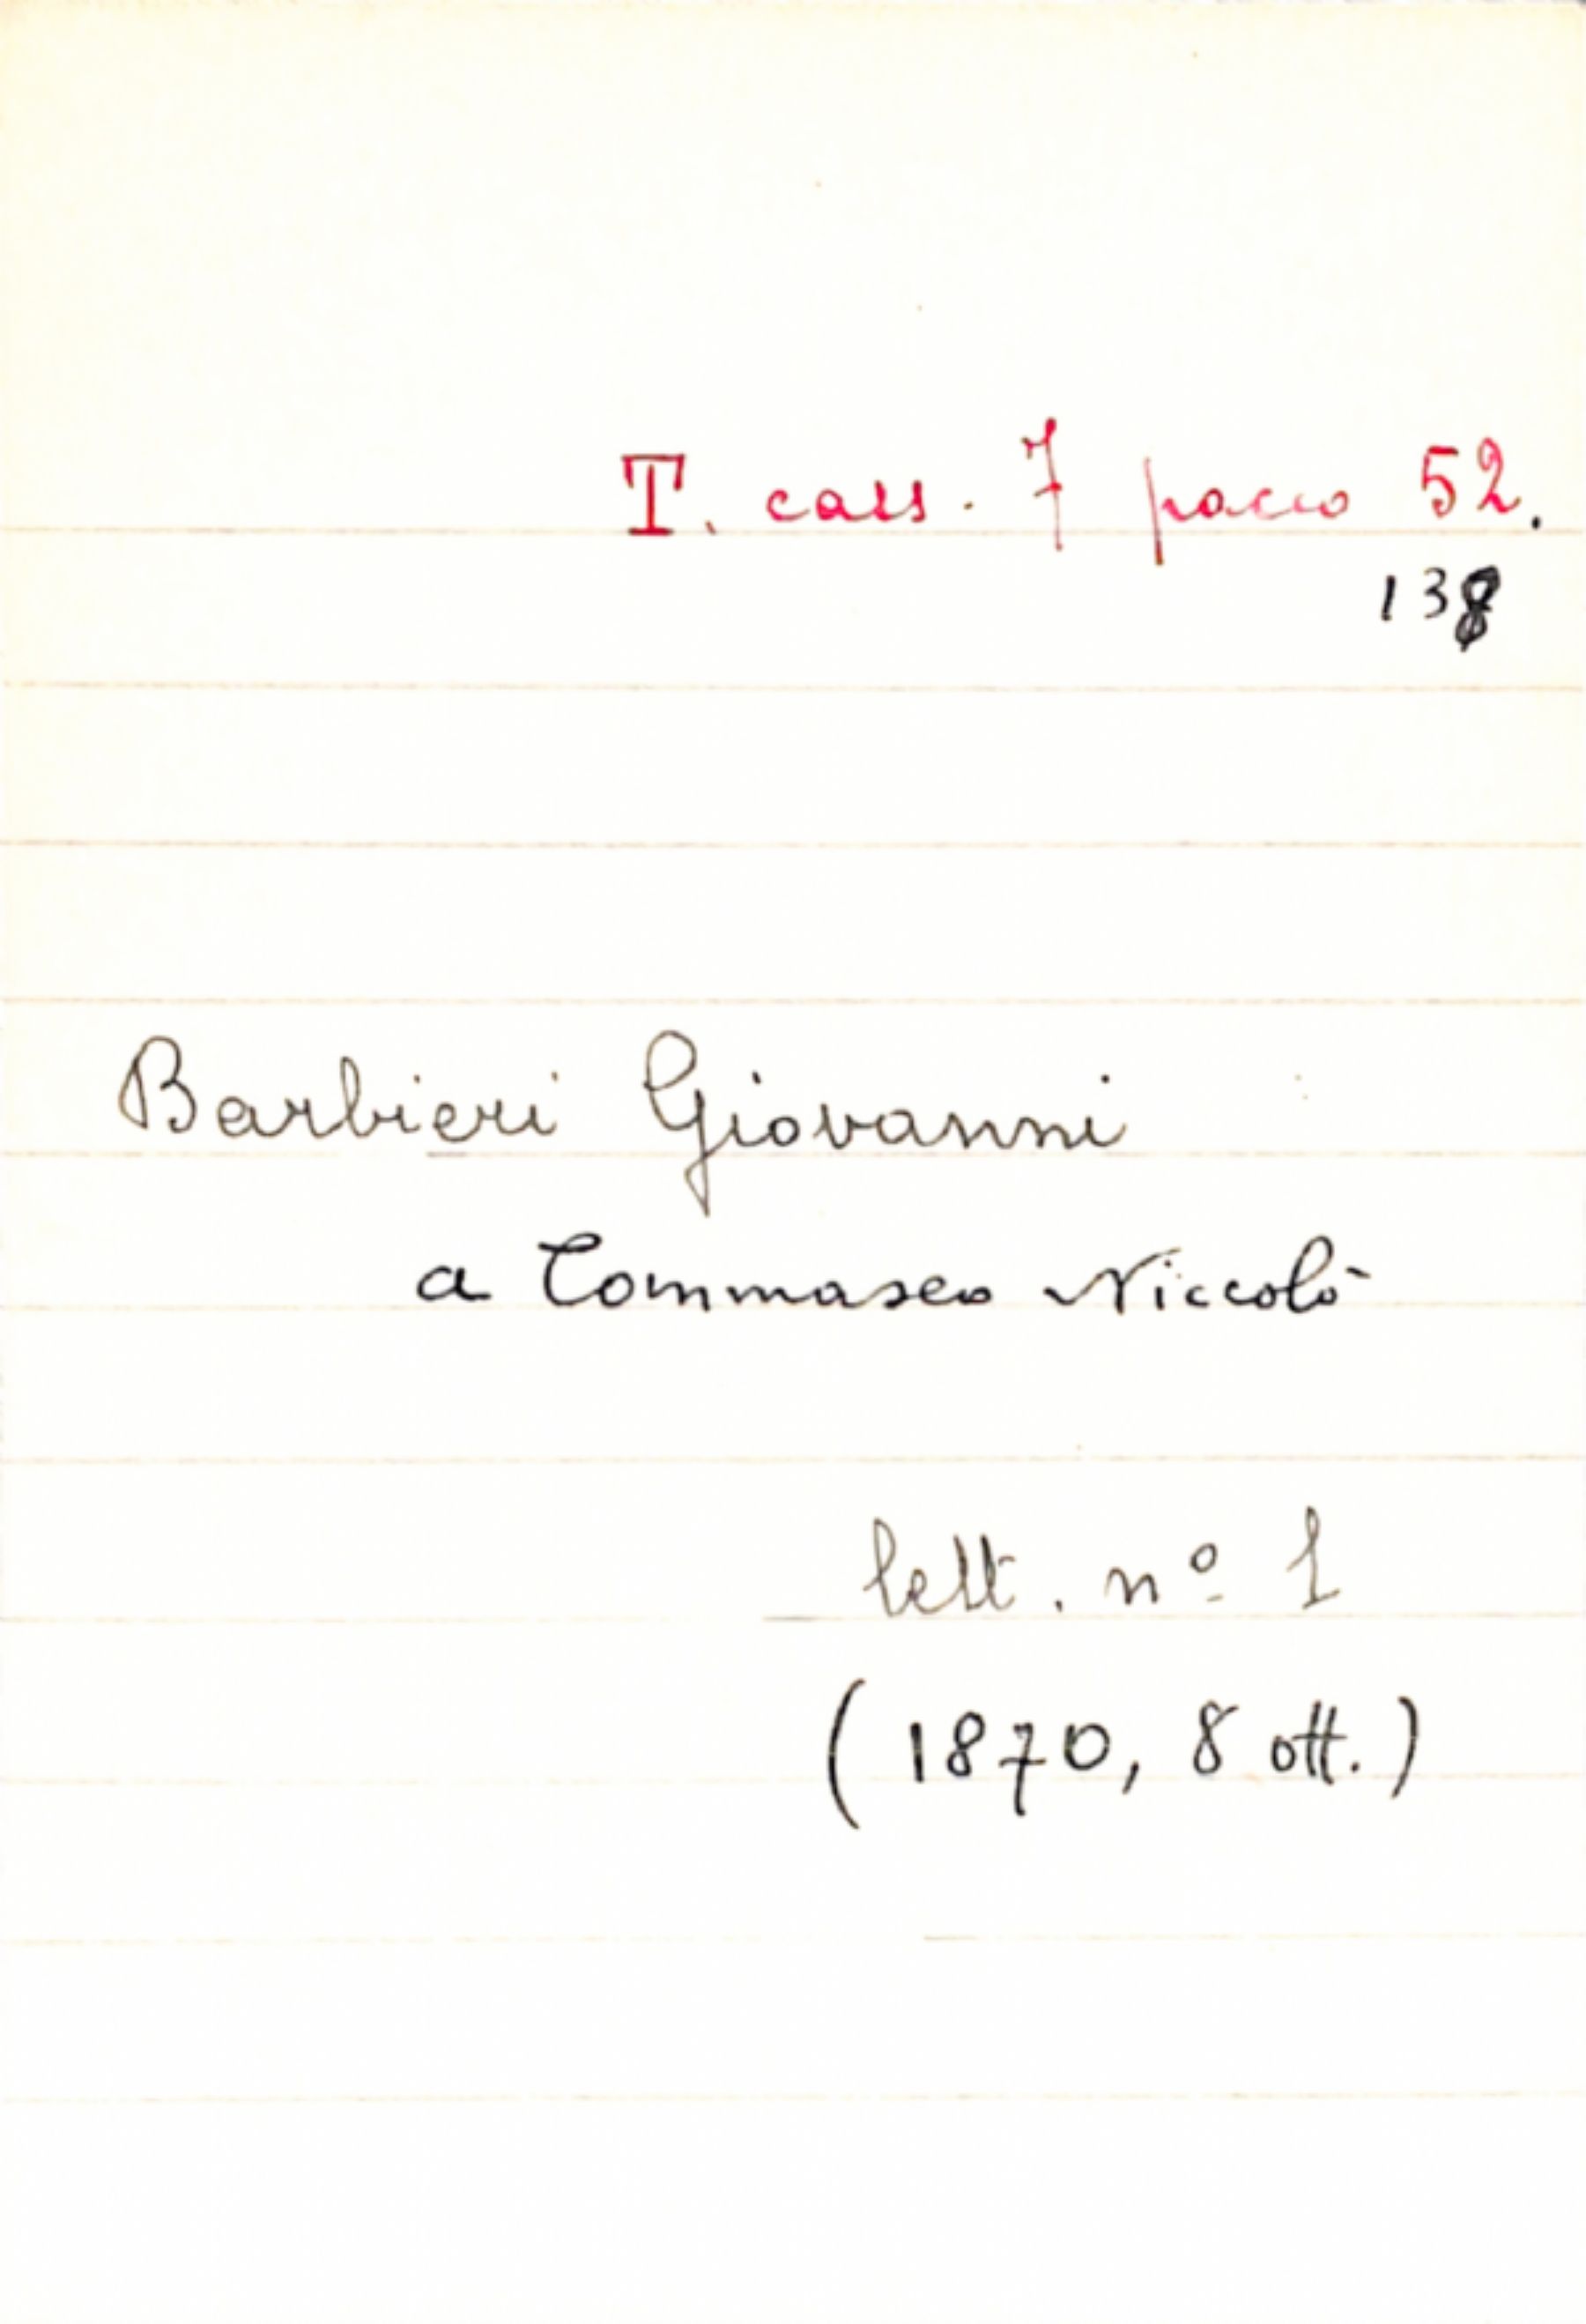 T. cass. 7 pacco 52.
138
Barbieri Giovanni
a Tommaseo Niccolò
lett. nº 1
(1870, 8 ott.)